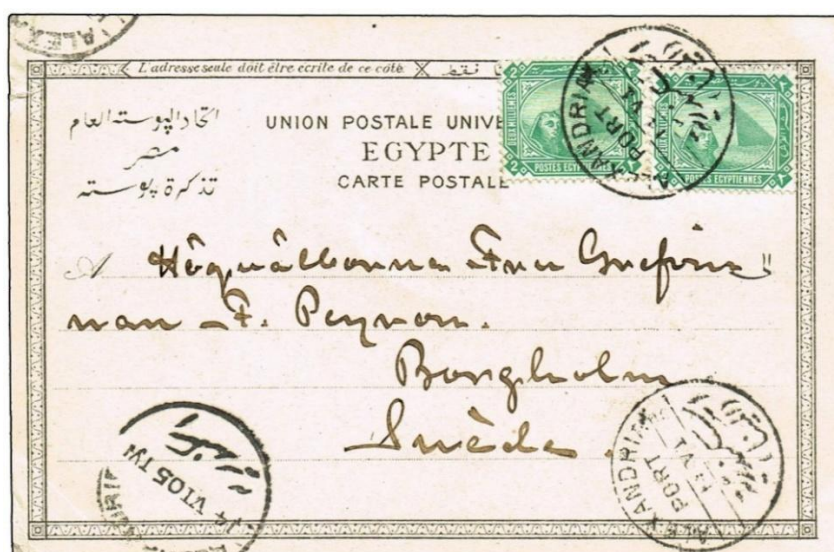 ALEXA
L'adresse seule doit être ecrite de ce coté.
فقط
اتحاد البوسته العام
مصر
تذكرة بوسته
UNION POSTALE UNIVE
EGYPTE
CARTE POSTALE
2 DEUX MILLIEMES 2
POSTES EGYPTIENNES
POSTES EGYPTIENNES
ALEXANDRIE
PORT
A Högvälborna Fru Grefvin"
nan F. Peyron.
Borgholm
Suède.
14 VI 05
ALEXANDRIE
PORT
VI